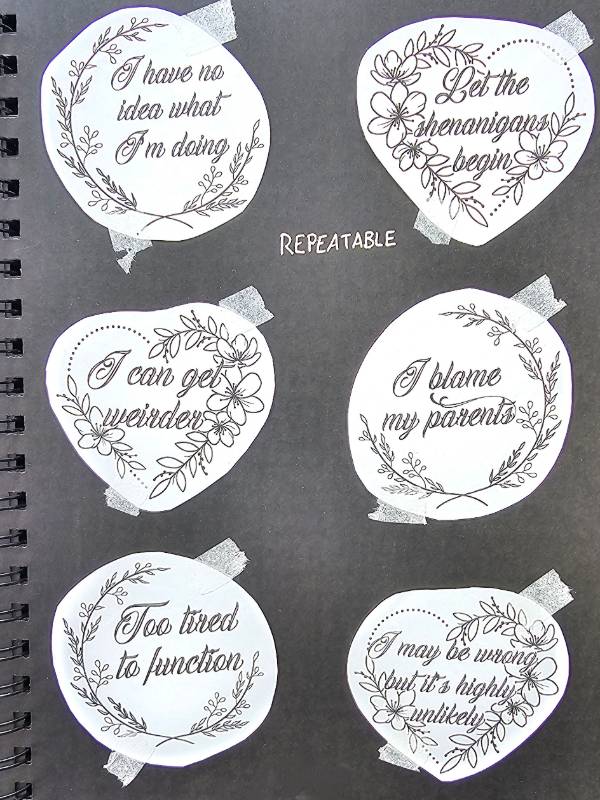 I have no
idea what
I'm doing
Let the
shenanigans
begin
REPEATABLE
I can get
weirder
I blame
my parents
Too tired
to function
I may be wrong
but it's highly
unlikely